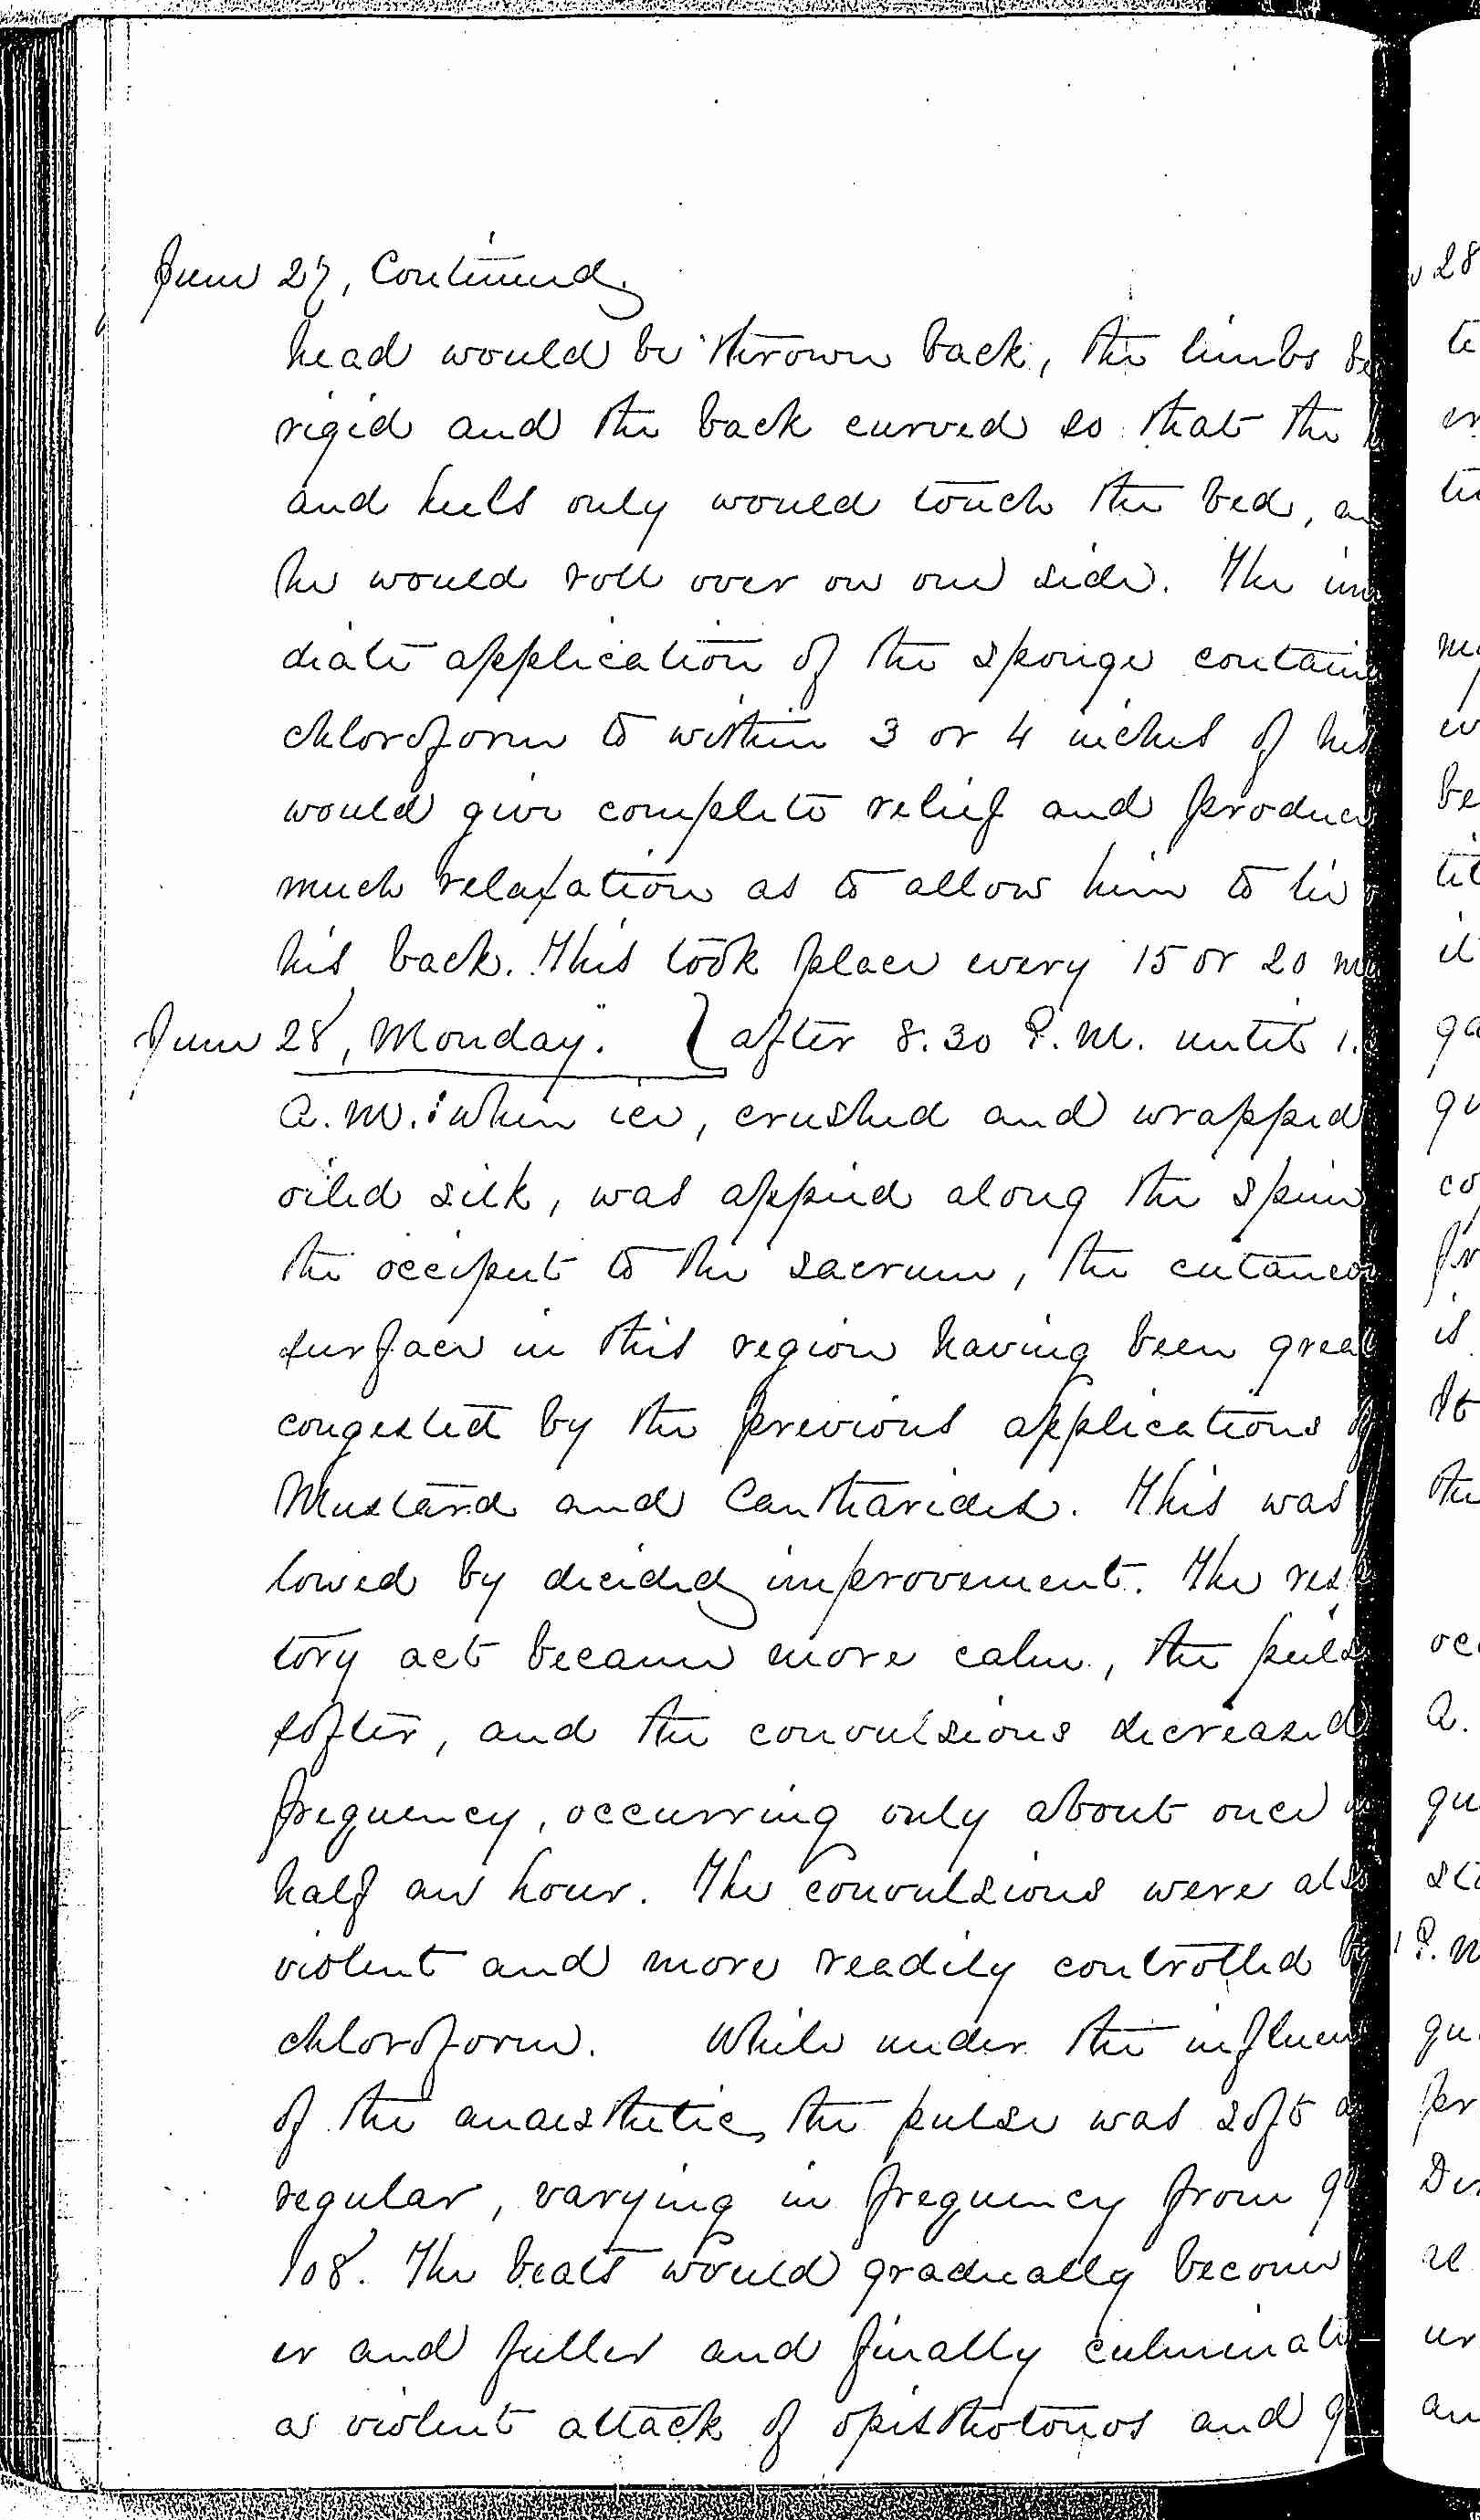 June 27, Continued.
head would be thrown back, the limbs be
rigid and the back curved so that the
and heels only would touch the bed, an
he would roll over on one side. The im
diate application of the sponge contain
chloroform to within 3 or 4 inches of his
would give complete relief and produce
much relaxation as to allow him to lie
his back. This took place every 15 or 20 m
June 28, Monday. } after 8.30 P.M. until 1.
A.M. when ice, crushed and wrapped
oiled silk, was appied along the spine
the occiput to the sacrum, the cutaneo
surface in this region having been great
congested by the previous applications of
Mustard and Cantharides. This was
lowed by decided improvement. The resp
tory act became more calm, the puls
softer, and the convulsions decreased
frequency, occurring only about once in
half an hour. The convulsions were also
violent and more readily controlled by
chloroform. While under the influen
of the anaesthetic, the pulse was soft a
regular, varying in frequency from 9
108. The beats would gradually become
er and fuller and finally culminate
a violent attack of opisthotonos and
28
te
er
be
til
it
qu
co
is
It
the
A.
P. M
qu
pr
ur
an